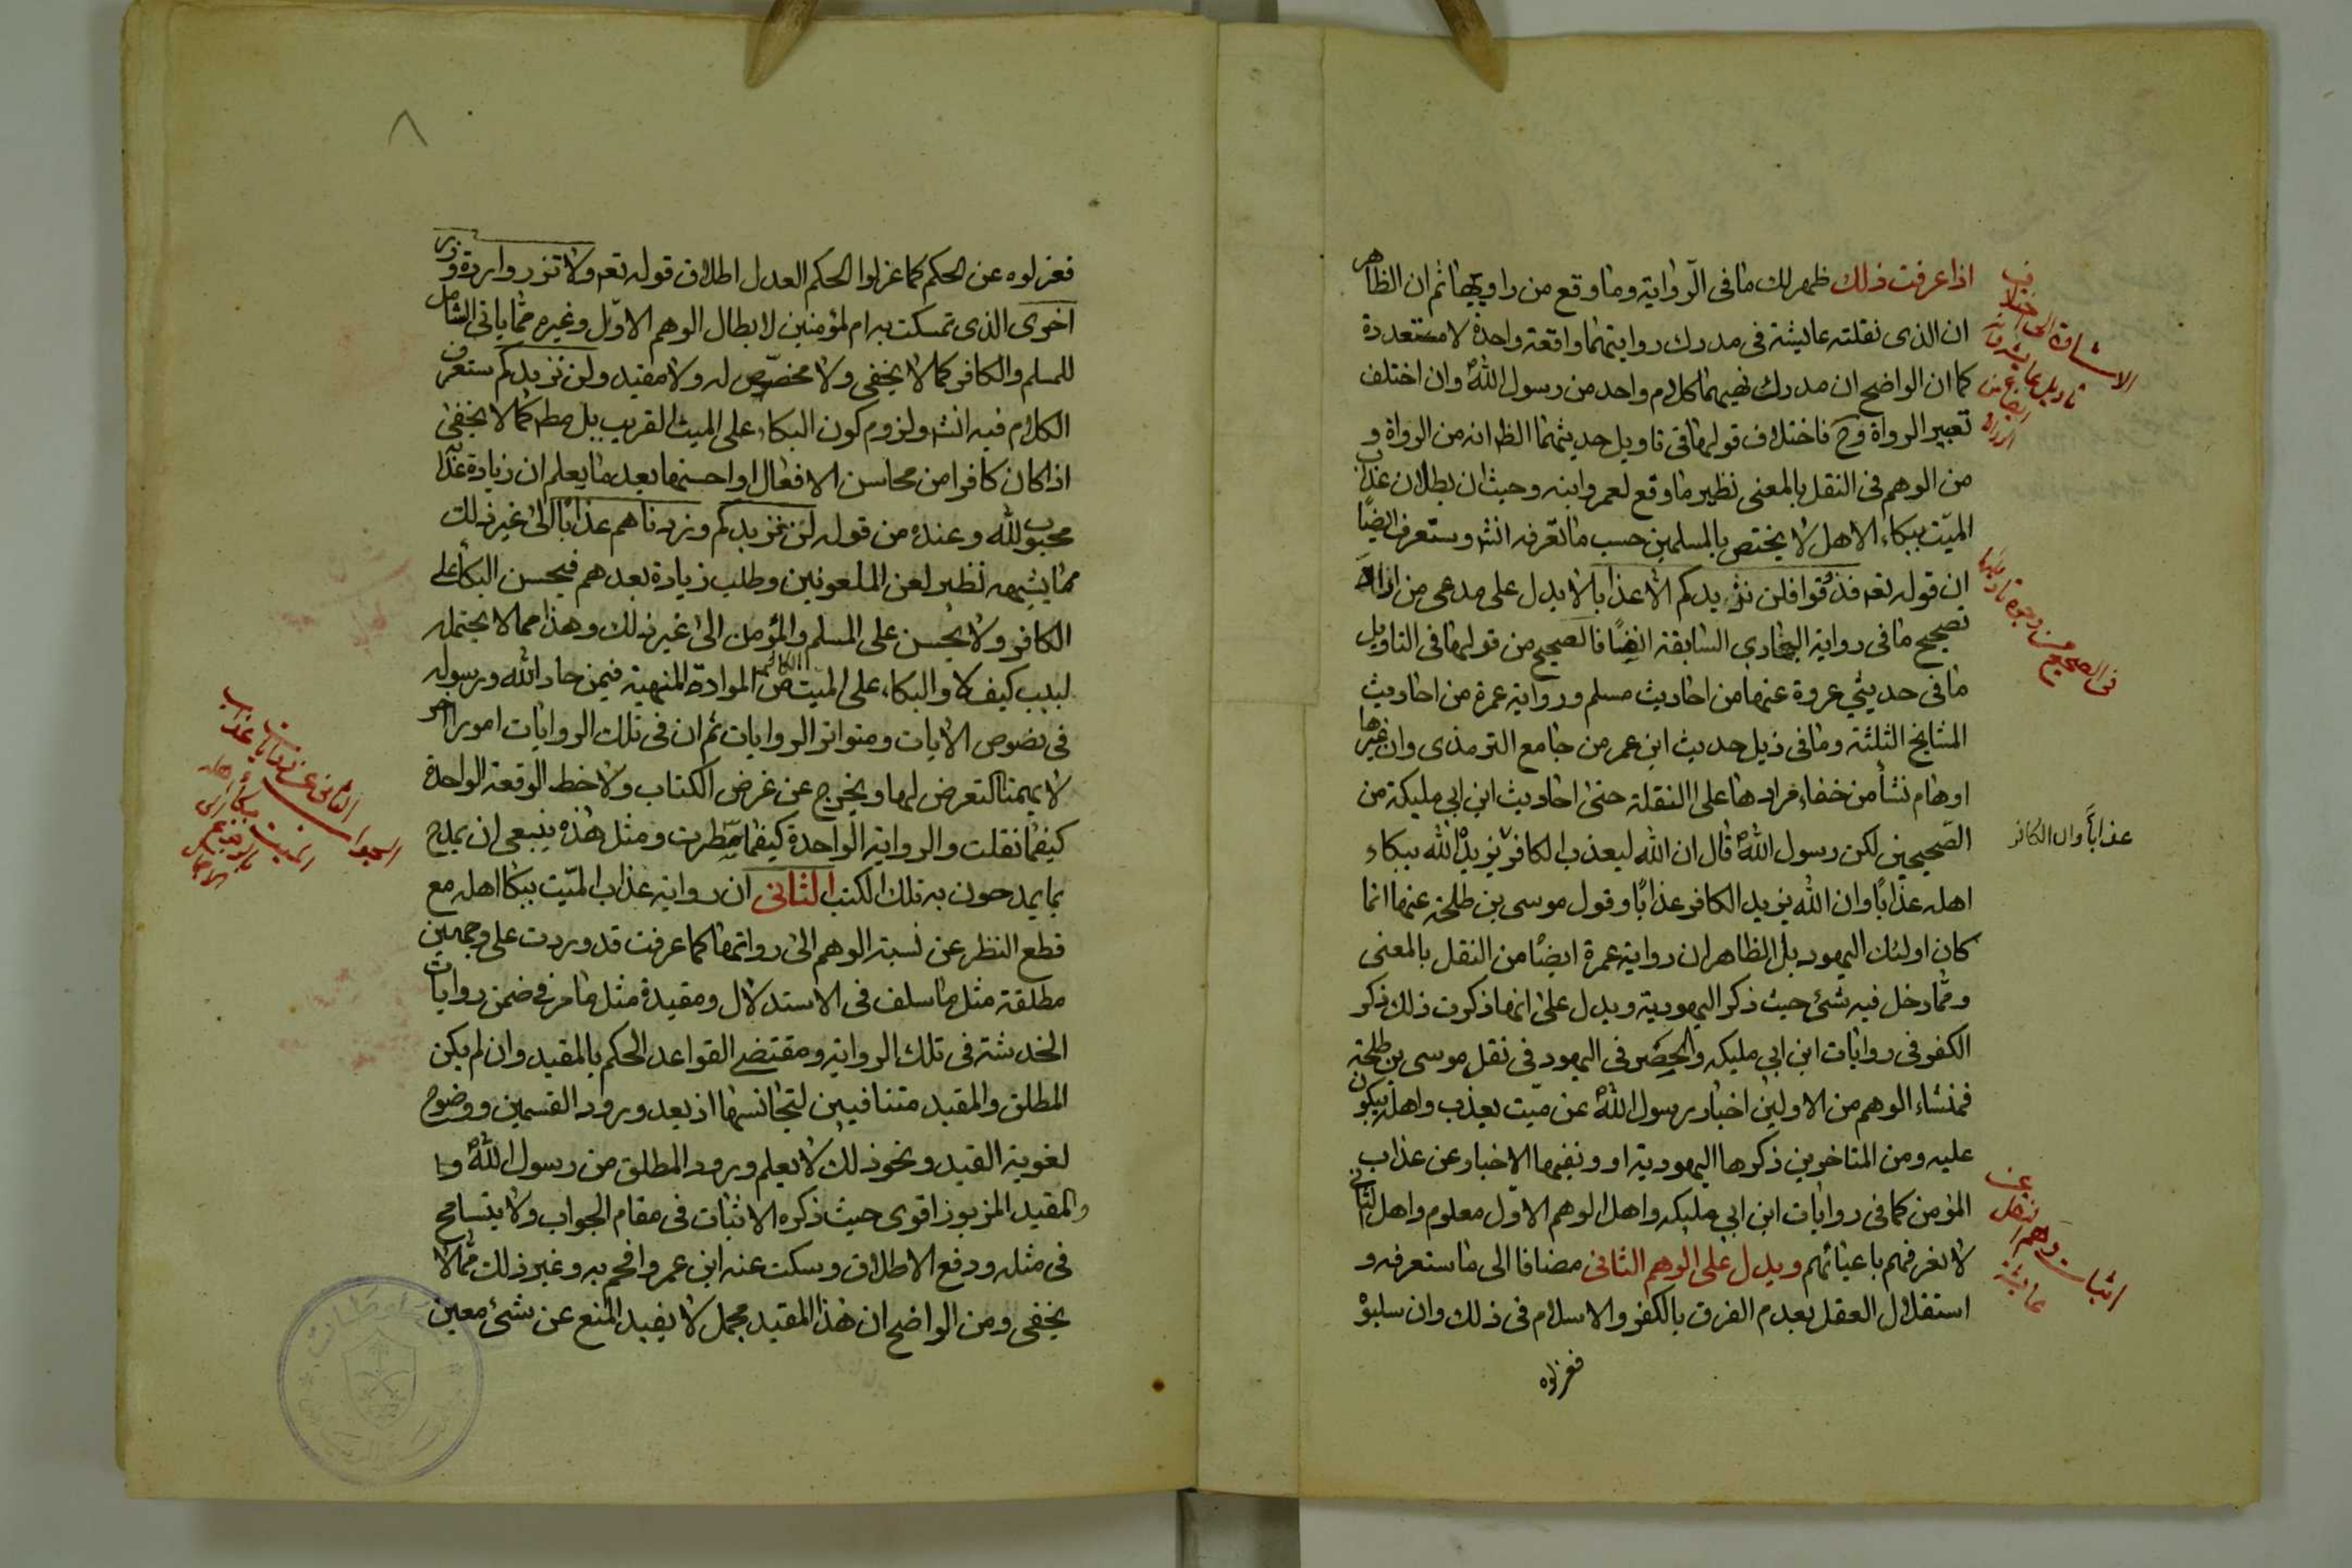 اذا عرفت ذلك ظهر لك ما فى الرّواية وما وقع من راويها ثم ان الظاهر
ان الذى نقلته عايشة فى مدرك روايتهما واقعة واحدة لا متعددة
كما ان الواضح ان مدرك نصيهما كلام واحد من رسول اللهؐ وان اختلف
تعبير الرواة وح فاختلاف قولها فى تاويل حديثهما الظ انه من الرواة و
من الوهم فى النقل بالمعنى نظير ما وقع لعمر وابنه وحيث ان بطلان عذاب
الميّت ببكاء الاهل لا يختص بالمسلمين حسب ما تعرّفه انش وستعرف ايضًا
ان قوله تعه فذوقوا فلن نزيدكم الا عذابا لا يدل على مدعى من
تصحيح ما فى رواية البخارى السابقة ايضًا فالصحيح من قولها فى التاويل
ما فى حديثي عروة عنها من احاديث مسلم ورواية عمرة من احاديث
المشايخ الثلثة وما فى ذيل حديث ابن عمر من جامع الترمذى وان غيرها
اوهام نشأ من خفاء مرادها على النقلة حتى احاديث ابن ابى مليكة من
الصّحيحين لكن رسول اللهؐ قال ان الله ليعذب الكافر يزيد الله ببكاء
عذاباً وان الكافر
اهله عذابًا وان الله يزيد الكافر عذابًا وقول موسى بن طلحة عنها انما
كان اولئك اليهود بل الظاهر ان رواية عمرة ايضًا من النقل بالمعنى
وممّا دخل فيه شئ حيث ذكر اليهودية ويدل على انها ذكرت ذلك ذكر
الكفر فى روايات ابن ابى مليكه والحصر فى اليهود فى نقل موسى بن طلحة
فمنشاء الوهم من الاولين اخبار رسول اللهؐ عن ميّت يعذب واهله يبكون
عليه ومن المتاخرين ذكرها اليهودية او ونفيها الاخبار عن عذاب
المؤمن كما فى روايات ابن ابى مليكه واهل الوهم الاوّل معلوم واهل الثانى
لا نعرفهم باعيانهم ويدل على الوهم الثانى مضافا الى ما ستعرفه و
استقلال العقل بعدم الفرق بالكفر والاسلام فى ذلك وان سلبوْ
فعزلوه
اثبات وهم النقل عن عايشة
فعزلوه عن الحكم كما عزلوا الحكم العدل اطلاق قوله تعه ولا تزر وازرة وزر
اخرى الذى تمسكت به ام المؤمنين لابطال الوهم الاوّل وغيره ممّا ياتى الشامل
للمسلم والكافر كما لا يخفى ولا مخصّص له ولا مقيد ولن نزيدكم ستعرف
الكلام فيه انش ولزوم كون البكاء على الميت القريب بل مط كما لا يخفى
اذا كان كافرا من محاسن الافعال او احسنها بعد ما يعلم ان زيادة عذا
محبوب لله وعنده من قوله لن نزيدكم وزدناهم عذابًا الى غير ذلك
مما يشبهه نظير لعن الملعونين وطلب زيادة بعدهم فيحسن البكأ على
الكافر ولا يحسن على المسلم والمؤمن الى غير ذلك وهذا مما لا يحتمله
لبيب كيف لا والبكاء على الميت الكافر من الموادة المنهية فيمن حاد الله ورسوله
فى نصوص الايات ومتواتر الروايات ثم ان فى تلك الروايات امورا اخر
لا يهمنا التعرض لها ويخرج عن غرض الكتاب ولاخط الوقعة الواحدة
كيفما نقلت والرواية الواحدة كيفما سطرت ومثل هذه ينبغى ان يمدح
بما يمدحون به تلك الكتب الثانى ان رواية عذاب الميّت ببكا اهله مع
قطع النظر عن نسبة الوهم الى رواتها كما عرفت قد وردت على وجهين
مطلقة مثل ما سلف فى الاستدلال ومقيدة مثل ما مر فى ضمن روايات
الخدشة فى تلك الرواية ومقتضى القواعد الحكم بالمقيد وان لم يكن
المطلق والمقيد متنافيين لتجانسها اذ بعد ورود القسمين ووضوح
لغوية القيد ونحو ذلك لا يعلم ورود المطلق من رسول اللهؐ و
والمقيد المزبور اقوى حيث ذكره الاثبات فى مقام الجواب ولا يتسامح
فى مثله ودفع الاطلاق وسكت عنه ابن عمر وافحم به وغير ذلك ممّا لا
يخفى ومن الواضح ان هذا المقيد مجمل لا يفيد المنع عن شئ معين
الجواب الثانى عن روايات عذاب
الميت ببكاء اهله
٨